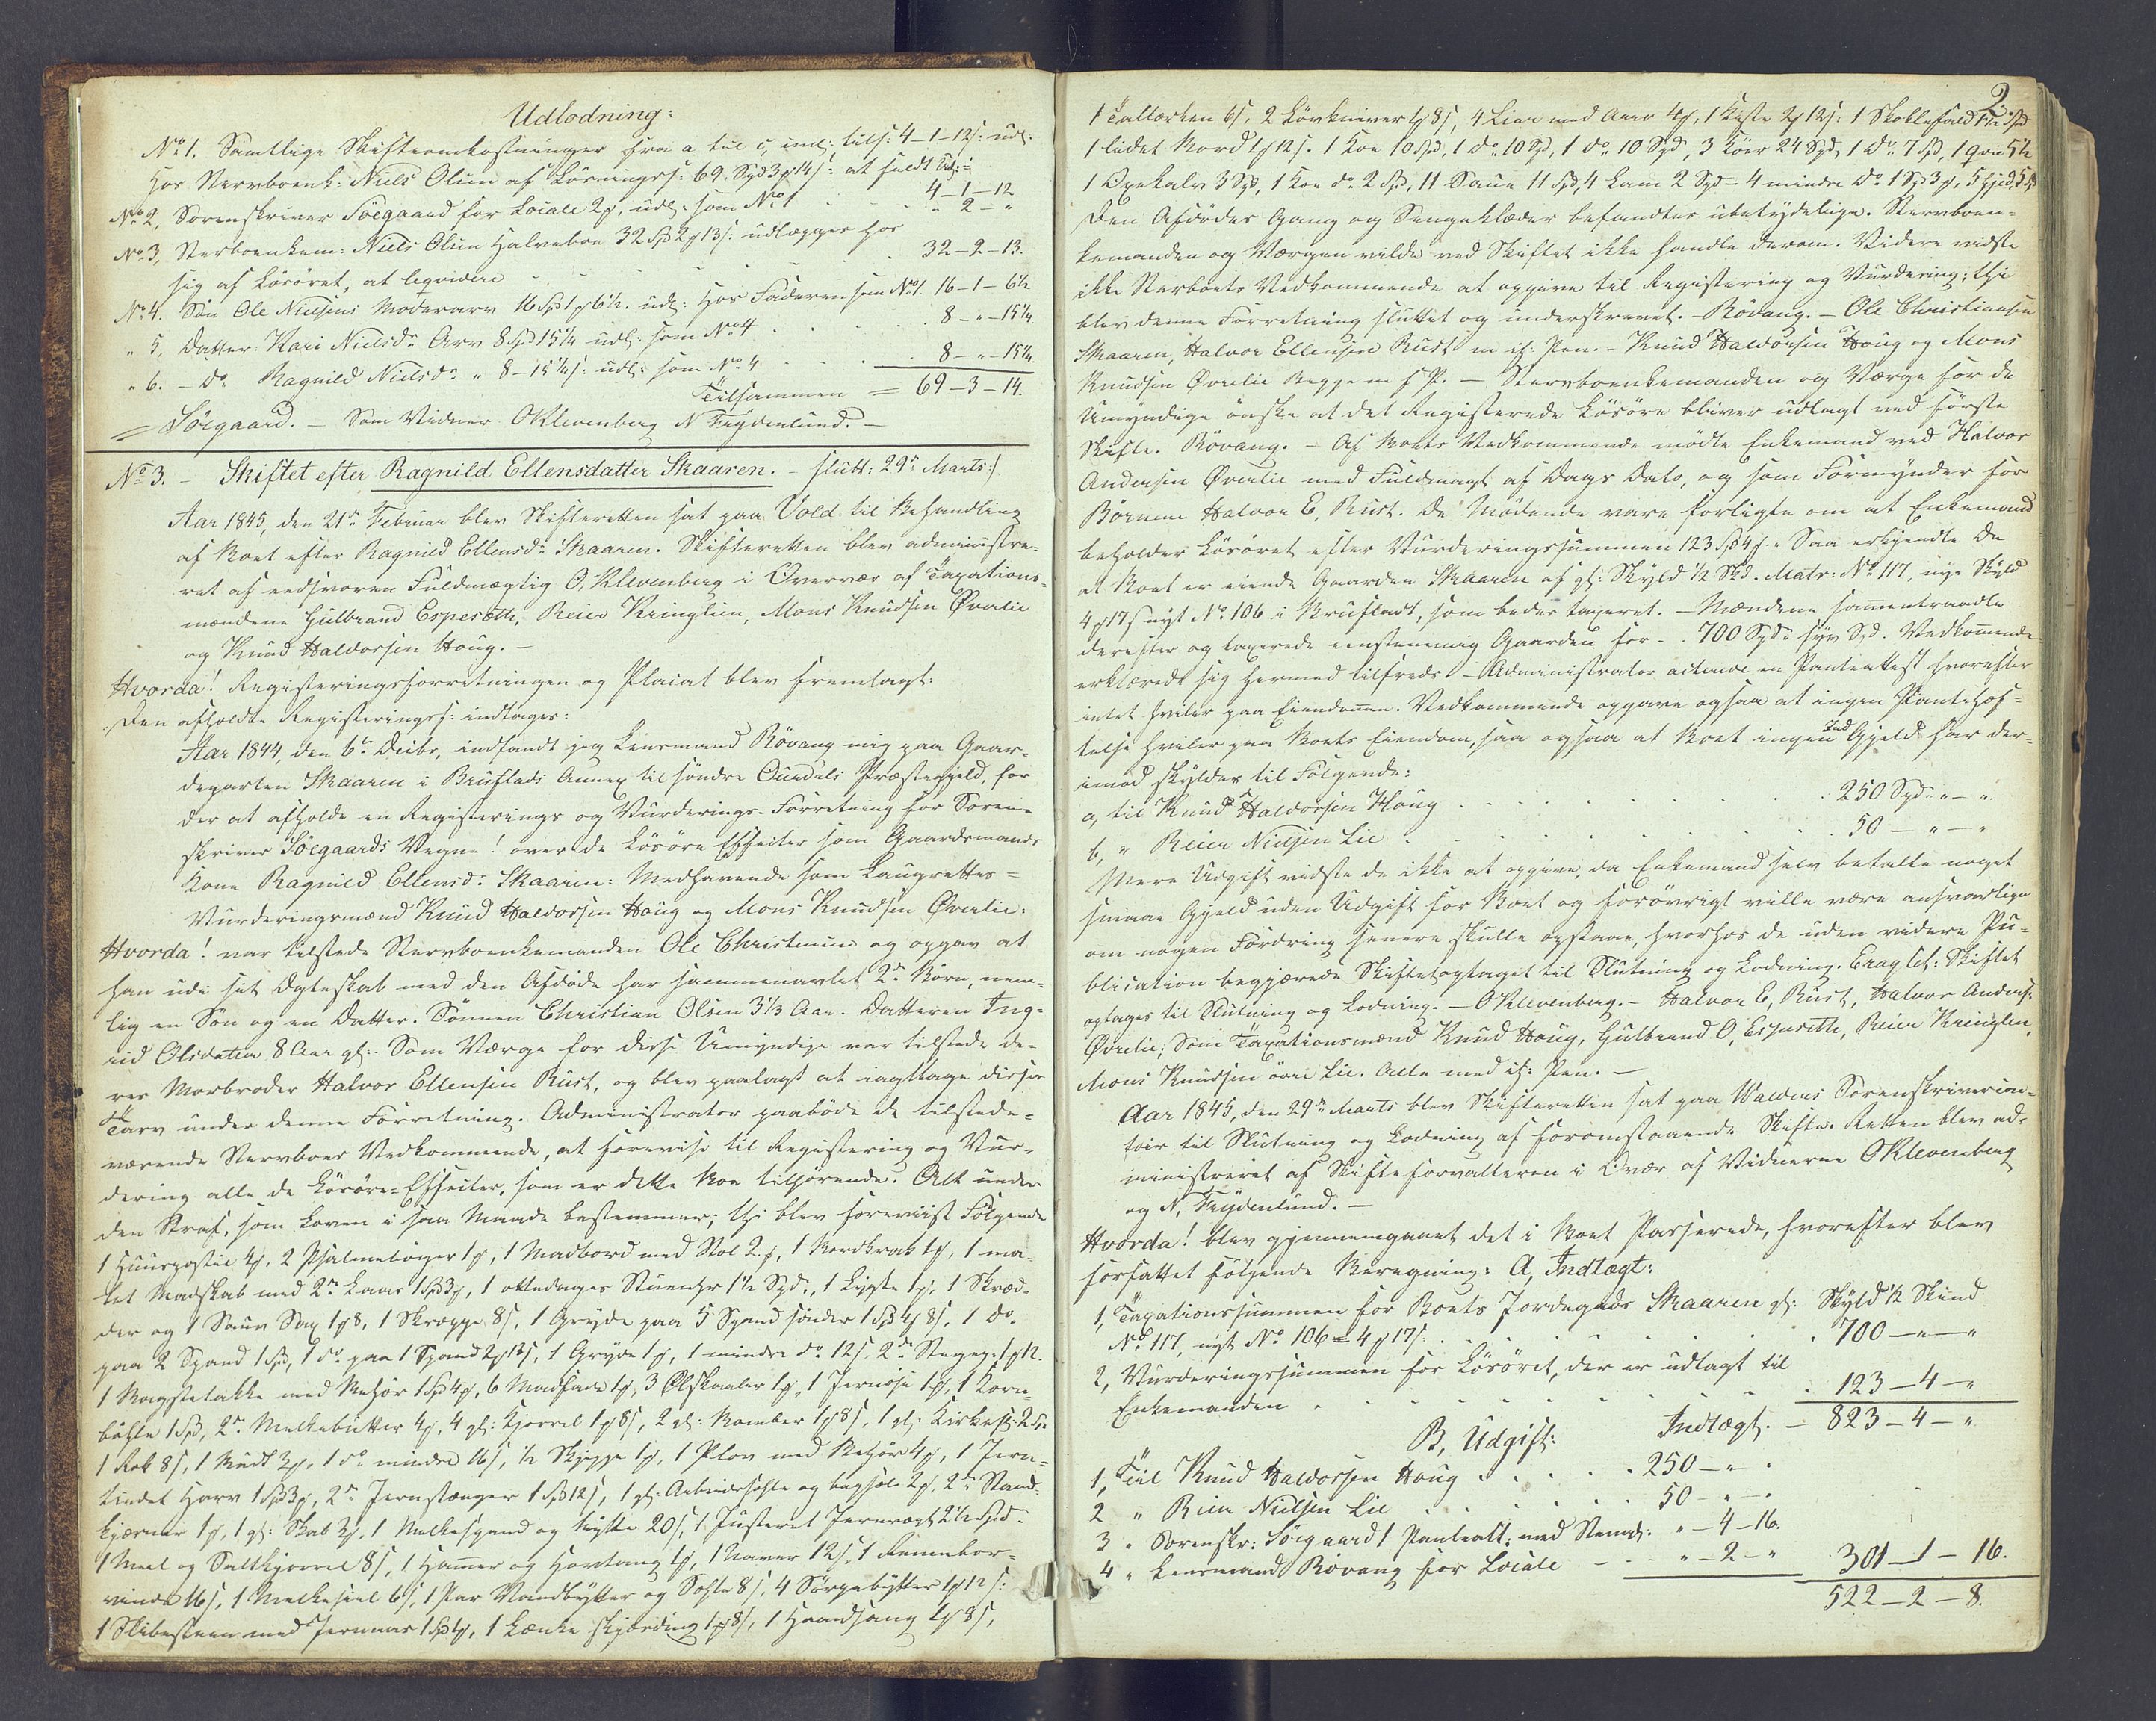 Udlodning:
No 1. Samtlige Skifteomkostninger fra a til c, incl: tils: 4-1-12 s: udl:
hos Stervboenk: Niels Olsen af Lösningss: 69 Spd 3 # 14 s: at fuldt
4-1-12
No 2, Sorenskriver Söegaard for Locale 2 #, udl: som No 1 . . . " 2 - "
No 3, Sterboenkem: Niels Olsen Halveboe 32 Spd 2 # 13 s: udlægges hos
sig af Lösöret, at leqvidere . . . . . 32-2-13.
No 4. Sön Ole Nielsens Moderarv 16 Spd 1 # 6½. udl: hos Faderen som No 1. 16-1-6½
" 5, Datter: Kari Nielsdr Arv 8 Spd 15¼ udl: som No 4 . . . 8-"-15¼.
" 6. - do Ragnild Nielsdr " 8-15¼ s: udl: som No 4 . . . 8-"-15¼.
Tilsammen = 69-3-14.
Söegaard. - Som Vidner OKlevenberg N Frydenlund. -
No 3. - Skiftet efter Ragnild Ellensdatter Skaaren. - slutt: 29de Marts
Aar 1845, den 21de Februar blev Skifteretten sat paa Vold til Behandling
af Boet efter Ragnild Ellensdr Skaaren. Skifteretten blev administre-
ret af eedsvoren Fuldmægtig O. Klevenberg i Overvær af Taxations-
mændene Gulbrand Espesætte, Reier Kringlien, Mons Knudsen Øvrelie
og Knud Haldorsen Houg. -
Hvorda! Registeringsforretningen og Placat blev fremlagt:
Den afholdte Registeringsf: indtages:
Aar 1844, den 6te Decbr, indfandt jeg Lensmand Rövang mig paa Gaar-
departen Skaaren i Bruflads Annex til söndre Ourdals Præstegjeld, for
der at afholde en Registerings og Vurderings-Forretning for Soren-
skriver Söegaards Vegne! over de Lösöre Effecter som Gaardmands
Kone Ragnild Ellensdr Skaaren: Medhavende som Laugrettes-
Vurderingsmænd Knud Haldorsen Houg og Mons Knudsen Øvrelie:
Hvorda! var tilstede Stervboenkemanden Ole Christensen og opgav at
han udi sit Ægteskab med den Afdöde har sammenavlet 2de Börn, nem-
lig en Sön og en Datter. Sönnen Christian Olsen 3⅓ Aar. Datteren Ing-
rid Olsdatter 8 Aar gl:. Som Værge for disse Umyndige var tilstede de-
res Morbroder Halvor Ellensen Rust, og blev paalagt at iagttage disses
Tarv under denne Forretning. Administrator paabød de tilstede-
værende Stervboes Vedkommende, at forevise til Registering og Vur-
dering alle de Lösöre-Effecter, som er dette Boe tilhörende. Alt under
den Straf, som Loven i saa Maade bestemmer; thi blev foreviist Følgende
1 Huuspostil 4 #, 2 Psalmebøger 1 #, 1 Madbord med Stol 2 #, 1 Bordkrak 1 #, 1 ma-
let Madskab med 2de Laaer 1 Spd 3 #, 1 ottedages Stueuhr 1½ Spd., 1 Lygte 1 #, 1 Skræd-
der og 1 Sauv Sax 1 # 8, 1 Skræppe 8 s, 1 Gryde paa 5 Spand sönder 1 Spd 4 # 8 s, 1 do.
paa 2 Spand 1 Spd, 1 do paa 1 Spand 2 # 12 s, 1 Gryde 1 #, 1 mindre do 12 s, 2de 1 # 12.
1 Bagstetakke med Behör 1 Spd 4 #, 6 Madfade 1 #, 3 Ølskaaler 1 #, 1 Jernøse 1 #, 1 Korn-
bölte 1 Spd, 2de Melkebutter 4 #, 4 gl: Kjørrel 1 # 8 s, 2 gl: Bomber 1 # 8 s, 1 gl:
1 Reb 8 s, 1 2 #, 1 do mindre 16 s, ½ Skjeppe 1 #, 1 Plov med Behör 4 #, 1 Jern-
tindet Harv 1 Spd 3 #, 2de Jernstænger 1 Spd 12 s, 1 gl: Arbeidssehle og bagsele 2 #, 2de Stand-
kjærner 1 #, 1 gl: Skab 3 #, 1 Melkespand og Bytte 20 s, 1 Justeret Jernvægt 2½ Spd -
1 Meel og Saltkjørrel 8 s, 1 Hammer og Hovtang 1 #, 1 Naver 12 s, 1 Rennebor-
vinde 16 s, 1 Melkesiel 6 s, 1 Par Vandbytter og Sehle 8 s, 4 Sörpebytter 1 # 12 s:
1 Slibesteen med Jernaas 1 Spd 1 #, 1 Lænke skjærding 1 # 8 s, 1 Haandsaug 1 # 8 s,
2
1 Tallorken 6 s, 2 Lövkniver 1 # 8 s, 4 Liar med Aaer 4 #, 1 Kiste 2 # 12 s: 1 Skotlefæld
1 lidet Bord 1 # 12 s. 1 Koe 10 Spd, 1 do 10 Spd, 1 do 10 Spd, 3 Köer 24 Spd, 1 do 7 Spd, 1 Qvie 5½
1 Oxekalv 3 Spd, 1 Koe do 2 Spd, 11 Saue 11 Spd, 4 Lam 2 Spd - 4 mindre do 1 Spd 3 #, 5 Gjed. 5 Spd
Den Afdödes Gang og Sengeklæder befandtes ubetydelige. Stervboen-
kemanden og Værgen vilde ved Skiftet ikke handle derom. Videre vidste
ikke Sterboets Vedkommende at opgive til Registering og Vurdering; thi
blev denne Forretning sluttet og underskrevet. - Rövang. - Ole Christiansen
Skaaren, Halvor Ellensen Rust m ih: Pen. - Knud Haldorsen Houg og Mons
Knudsen Øvrelie Begge m f P. - Stervboenkemanden og Værge for de
Umyndige önske at det Registerede Lösöre bliver udlagt ved förste
Skifte. Rövang. - Af Boets Vedkommende mödte Enkemand ved Halvor
Andersen Øvrelie med Fuldmagt af Dags Dato, og som Formynder for
Börnene Halvor E. Rust. De Mödende vare forligte om at Enkemand
beholder Lösöret efter Vurderingssummen 123 Spd 4 #. - Saa erkjendte De
at Boet er eiende Gaarden Skaaren af gl: Skyld ½ Skd. Matr: No 117, nye Skyld
4 # 17 s nyt No 106 i Brufladt, som bedes taxeret. - Mændene sammentraadte
derefter og taxerede eenstemmig Gaarden for - . 700 Spd syv Spd. Vedkommende
erklærede sig hermed tilfreds - Administrator acterede en Panteattest hvorefter
intet hviler paa Eiendommen. Vedkommende opgave ogsaa at ingen Pantehæf-
telse hviler paa Boets Eiendom, saa ogsaa at Boet ingen Ind Gjeld har der-
imod skyldes til Fölgende:
a, til Knud Haldorsen Houg . . . . . 250 Spd. "-".
b, " Reier Nielsen Lie . . . . . 50 - " - "
Mere Udgift vidste de ikke at opgive, da Enkemand selv betalte noget
smaae Gjeld uden Udgift for Boet og forövrigt ville være ansvarlige
om nogen Fordring senere skulle opstaae, hvorhos de uden videre Pu-
blication begjærede Skiftet optaget til Slutning og Lodning. Eragtet: Skiftet
optages til Slutning og Lodning. - OKlevenberg. - Halvor E, Rust, Halvor Anders:
Øvrelie; Som Taxationsmænd Knud Houg, Gulbrand O, Espesette, Reier Kringlen,
Mons Knudsen övre Lie. Alle med ih: Pen. -
Aar 1845, den 29de Marts blev Skifteretten sat paa Waldens Sorenskrivercon-
toir til Slutning og Lodning af foromstaaende Skifte. Retten blev ad-
ministreret af Skifteforvalteren i Ovær af Vidnerne OKlevenberg
og N, Frydenlund. -
Hvorda! blev gjennemgaaet det i Boet Passerede, hvorefter blev
forfattet fölgende Beregning: A, Indtægt:
1, Taxationssummen for Boets Jordegods Skaaren gl: Skyld ½ Skind
No 117, nyt No 106 = 4 # 17 s: . . . . . 700-"-"
2, Vurderingssummen for Lösöret, der er udlagt til
Enkemanden . . . . . 123-4-"
Indtægt. - 823-4-".
B, Udgift:
1, Til Knud Haldorsen Houg . . . . . 250-".
2 " Reier Nielsen Lie . . . . . 50-"-.
3 " Sorenskr: Söegaard 1 Panteatt: med Stempl: "-4-16.
4 " Lensmand Rövang for Locale - - - "-2-" 301-1-16.
522-2-8.